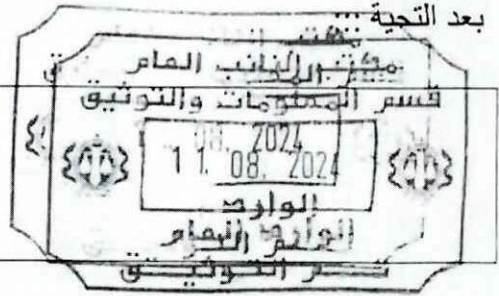 بعد التحية ...
مكتب النائب العام
قسم المعلومات والتوثيق
08. 2024
11. 08. 2024
الوارد
العام
قسم التوثيق